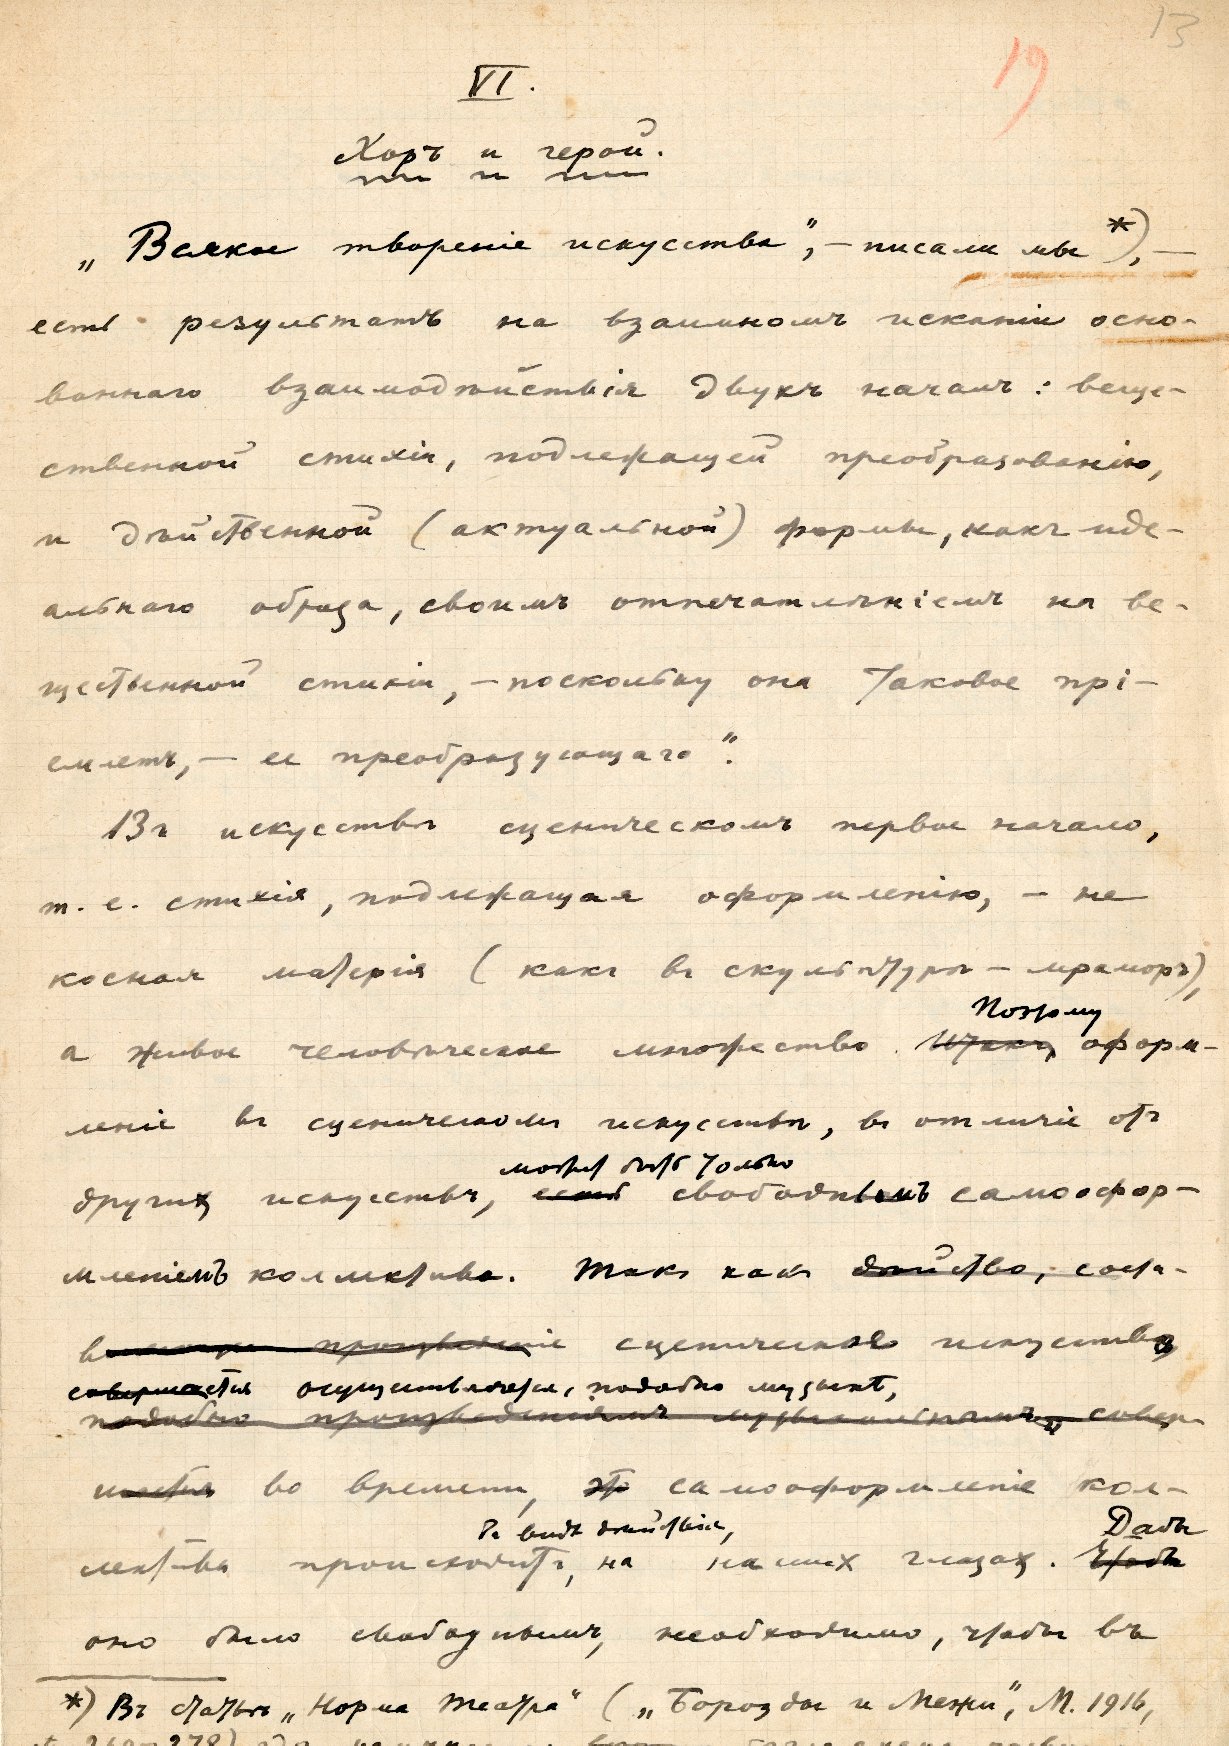 13
19
VI.
Хоръ и герой.
„Всякое творенiе искусства“, – писали мы *), –
есть результатъ на взаимномъ исканiи осно-
ваннаго взаимодѣйствiя двухъ началъ: веще-
ственной стихiи, подлежащей преобразованiю,
и дѣйственной (актуальной) формы, какъ иде-
альнаго образа, своимъ отпечатлѣнiемъ на ве-
щественной стихiи, – поскольку она таковое прi-
емлетъ, – ее преобразующаго“.
Въ искусствѣ сценическомъ первое начало,
т. е. стихiя, подлежащая оформленiю, – не
косная матерiя (какъ въ скульптурѣ – мраморъ),
Поэтому
а живое человѣческое множество. Итакъ, оформ-
ленiе въ сценическомъ искусствѣ, въ отличiе отъ
можетъ быть только
другихъ искусствъ, есть свободнымъ самоофор-
мленiемъ коллектива. Такъ какъ дѣйство, соста-
вляющее произведенiе сценическое искусство
совершается осуществляется, подобно музыкѣ,
подобно произведенiямъ музыкальнымъ, совер-
шается во времени, то самооформленiе кол-
въ видѣ дѣйствiя,
Дабы
лектива происходитъ, на нашихъ глазахъ. Чтобы
оно было свободнымъ, необходимо, чтобы въ
*) Въ статьѣ „Норма театра“ („Борозды и Межи“, М. 1916,